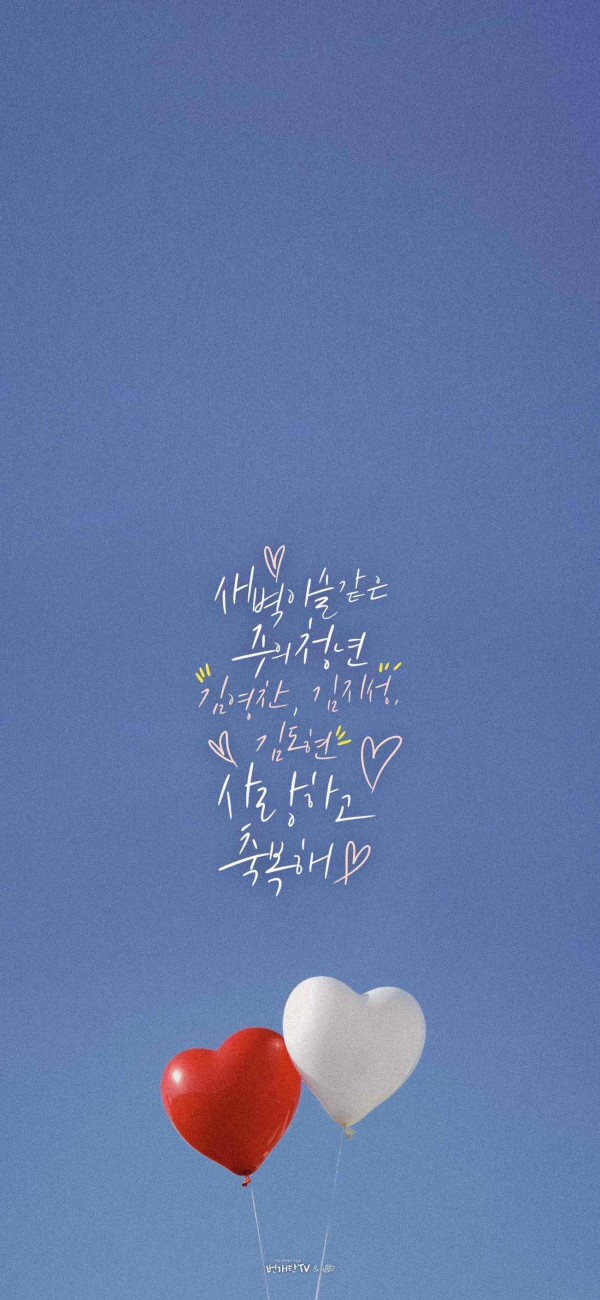 새벽이슬같은
주의청년
김영찬, 김지성,
김도현
사랑하고
축복해
번개탄TV &